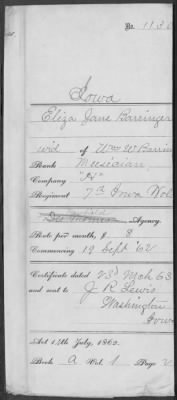 No. 1130
Iowa
Eliza Jane Barringer
wid of Wm W Barrin
Rank Musician
Company "H"
Regiment 7th Iowa Vol
Des Moines Agency.
Rate per month, $ 8
Commencing 19 Sept '62
Certificate dated 23d Mch 63
and sent to J R Lewis
Washington
Iowa
Act 14th July, 1862.
Book A Vol. 1 Page